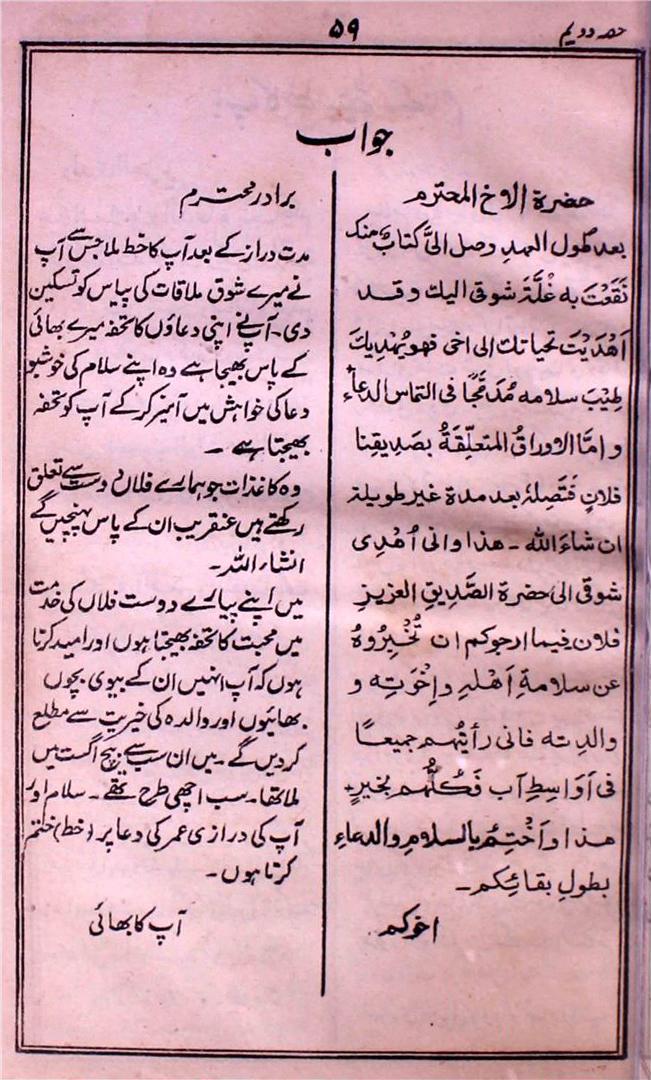 حصہ دویم
۵۹
جواب
حضرة الاخ المحترم
بعد طول العهدِ وصل الىَّ كتابٌ منك
نَقَعْتَ به غُلَّةَ شوقى اليك وقد
اَهْدَيْتَ تحياتك الى اخى فهو يُهْدِيك
طِيْبَ سلامه مُدَمَّجًا فى التماس الدعاءِ
و امّا الاوراقُ المتعلّقةُ بصَدِيقنا
فلانٍ فَتَصِلهُ بعد مدة غير طويلة
ان شاءَ الله ۔ هذا وانى اُهْدِى
شوقى الى حضرة الصَّدِيقِ العزيزِ
فلان فيما ارجوكم ان تُخْبِرُوهُ
عن سلامةِ اَهْلهِ واِخْوَتِه و
والدته فانى رأيتُهم جميعًا
فى اَوَاسِطِ آب فَكُلُّهم بخيرٍ۔
هذا واَخْتِمُ بالسلامِ والدعاءِ
بطولِ بقائِكم ۔
اخوكم
برادر محترم
مدت دراز کے بعد آپ کا خط ملا جس سے آپ
نے میرے شوق ملاقات کی پیاس کو تسکین
دی۔ آپ نے اپنی دعاؤں کا تحفہ میرے بھائی
کے پاس بھیجا ہے وہ اپنے سلام کی خوشبو
دعا کی خواہش میں آمیز کر کے آپ کو تحفہ
بھیجتا ہے ۔
وہ کاغذات جو ہمارے فلاں دوست سے تعلق
رکھتے ہیں عنقریب ان کے پاس پہنچیں گے
انشاء اللہ ۔
میں اپنے پیارے دوست فلاں کی خدمت
میں محبت کا تحفہ بھیجتا ہوں اور امید کرتا
ہوں کہ آپ انہیں ان کے بیوی بچوں
بھائیوں اور والدہ کی خیریت سے مطلع
کر دیں گے ۔ میں ان سب سے بیچ اگست میں
ملا تھا۔ سب اچھی طرح تھے ۔ سلام اور
آپ کی درازی عمر کی دعا پر (خط) ختم
کرتا ہوں ۔
آپ کا بھائی